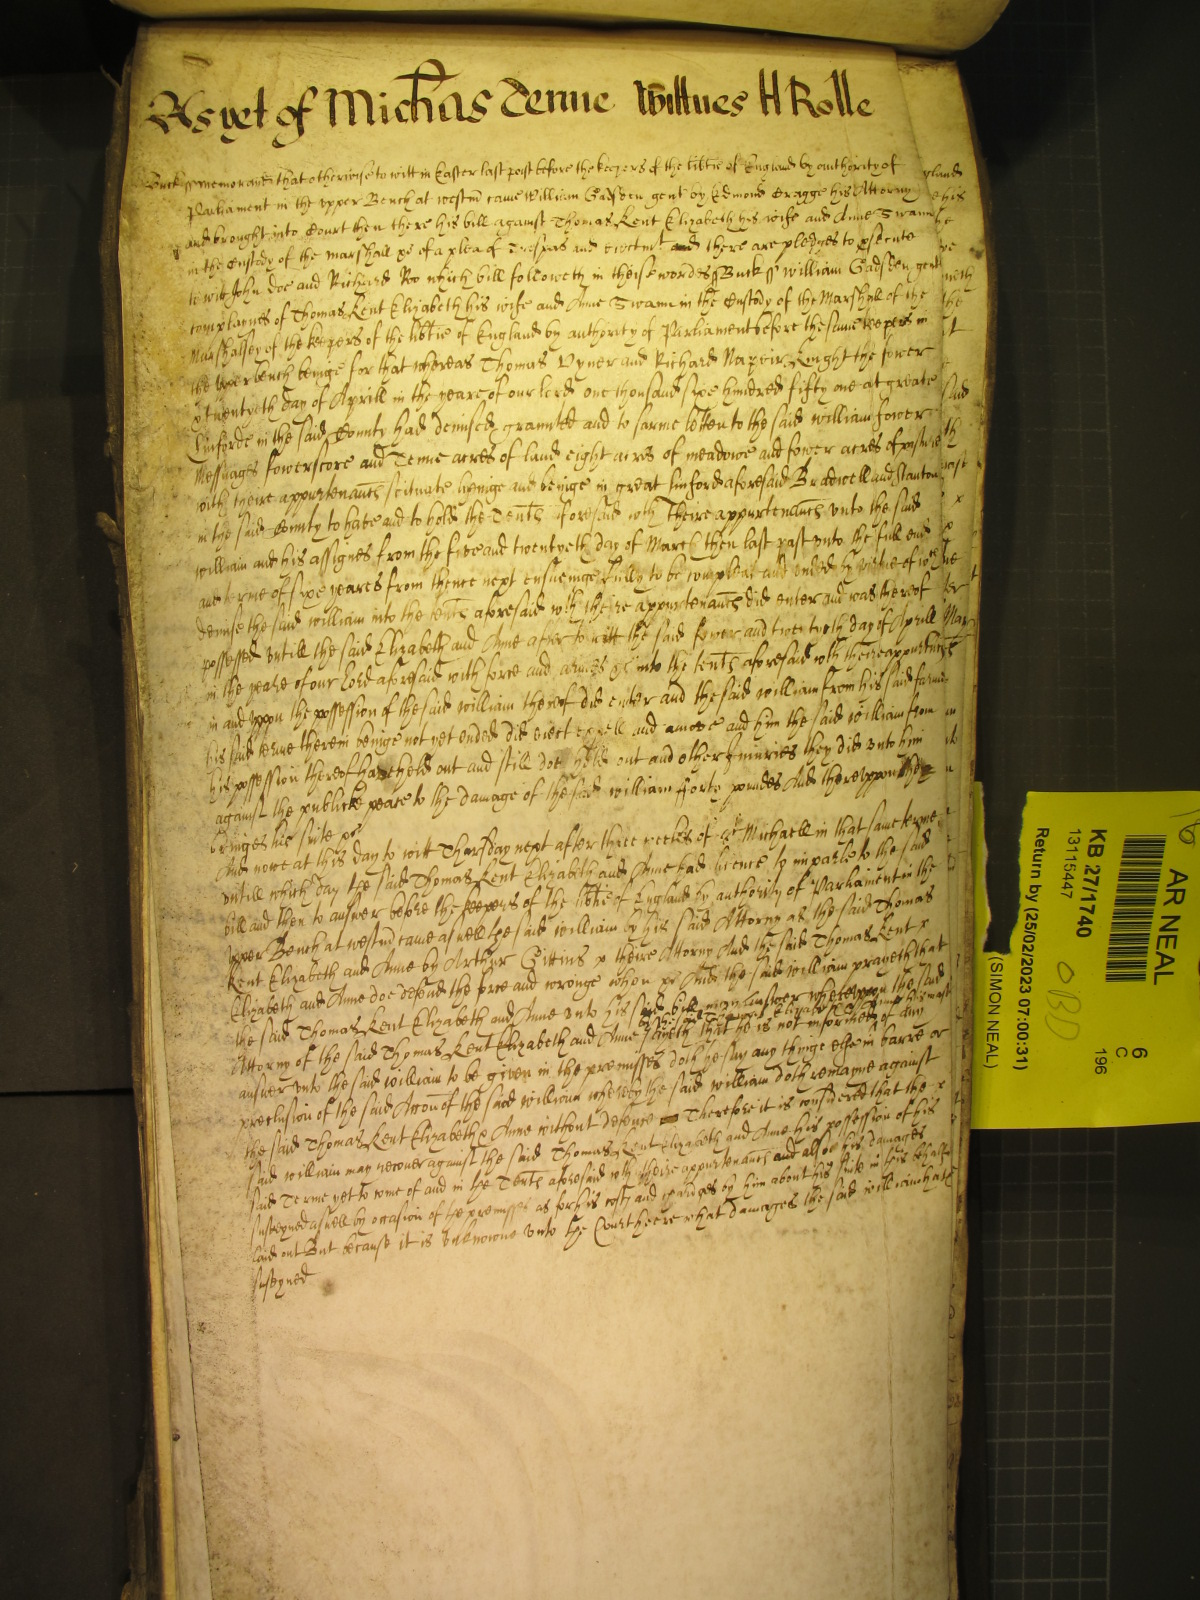 As yet of Mich'as Terme Wittnes H Rolle
Buck ss Memorand that otherwise to witt in Easter last past before the keepers of the lib'tie of England by authority of
Parliament in the upper Bench at westm came William Gadsden gent by Edmond Cragge his Attorny
and brought into Court then there his bill against Thomas Kent Elizabeth his wife and Anne Swann
in the Custody of the Marshall &c of a plea of Trespas and eiectmt And there are pledges to p'secute
to witt John Doe and Richard Roo which bill followeth in theise words ss Buck ss William Gadsden gent
complaynes of Thomas Kent Elizabeth his wife and Anne Swann in the Custody of the Marshall of the
Marshalsey of the keepers of the lib'tie of England by authority of Parliament before the same keepers in
the upper bench beinge for that whereas Thomas Vyner and Richard Napeir Knight the fower
& twentyeth day of Aprill in the yeare of our Lord one thousand sixe hundred fifty one at greate
Linforde in the said County had demised graunted and to farme letten to the said William fower
Messuages fowerscore and Tenne acres of land eight acres of meadowe and fower acres of pasture
with theire appurtenancs scituate lyeinge and beinge in great linford aforesaid Bradwell and Stanton
in the said County to have and to hold the Tents aforesaid wth theire appurtenancs unto the said
William and his assignes from the five and twentyeth day of March then last past unto the full end
and terme of sixe yeares from thence next ensueinge fully to be compleat and ended By vertue of wch
demise the said William into the tents aforesaid wth theire appurtenancs did enter and was thereof
possessed untill the said Elizabeth and Anne after to witt the said fower and twentyeth day of Aprill
in the yeare of our Lord aforesaid with force and armes &c into the tents aforesaid wth theire appurtenncs
in and uppon the possession of the said William thereof did enter and the said William from his said farme
his said terme therein beinge not yet ended did eiect expell and amove and him the said William from
his possession thereof have held out and still doe hold out and other Iniuries they did unto him
against the publicke peace to the damage of the said William forty poundes And thereuppon he
bringes his suite &c
And nowe at this day to witt Thursday next after three weekes of St Michaell in that same terme
untill which day the said Thomas Kent Elizabeth and Anne had licence to imparle to the said
bill and then to answer before the keepers of the lib'tie of England by authority of Parliament in the
upper Bench at westm came aswell the said William by his said Attorny as the said Thomas
Kent Elizabeth and Anne by Arthur Gittins theire Attorny And the said Thomas Kent
Elizabeth and Anne doe defend the force and wronge when &c And the said William prayeth that
the said Thomas Kent Elizabeth and Anne unto his said bill may answer whereuppon the said
Attorny of the said Thomas Kent Elizabeth and Anne sayeth that he is not informed of any
answer unto the said William to be given in the premisses doth he say any thinge else in barre or
preclusion of the said Accon of the said William whereby the said William doth remayne against
the said Thomas Kent Elizabeth & Anne without defence Therefore it is considered that the
said William may recover against the said Thomas Kent Elizabeth and Anne his possession of his
said Terme yet to come of and in the Tents aforesaid wth theire appurtenancs and alsoe his damages
susteyned aswell by occasion of the premisses as for his costs and chardges by him about his suite in this behalfe
laid out But because it is unknowne unto the Court heere what damages the said William hath
susteyned
AR NEAL
KB 27/1740
13115447
Return by (25/02/2023 07:00:31)
(SIMON NEAL)
6
C
196